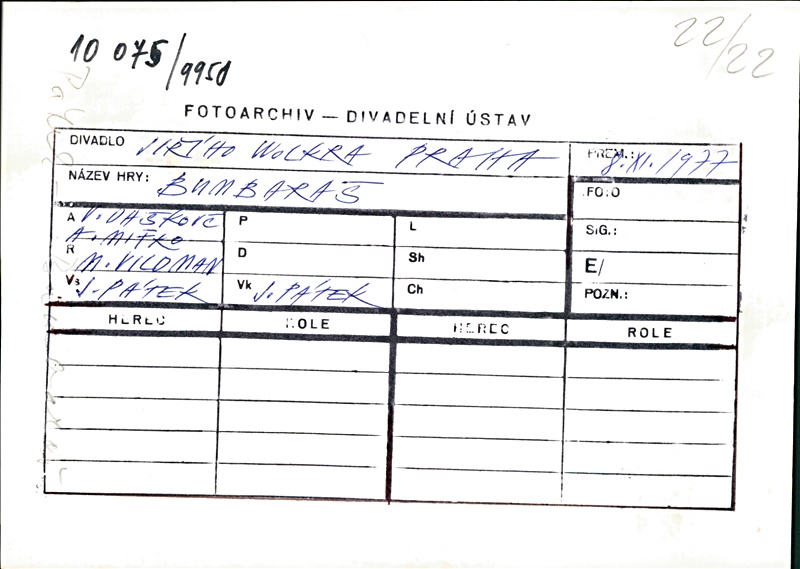 10 075/9958
22/22
FOTOARCHIV — DIVADELNÍ ÚSTAV
DIVADLO JIŘÍHO WOLKRA PRAHA PREM.: 8. XI. 1977
NÁZEV HRY: BUMBARAŠ FOTO
A V. DAŠKOVIČ P L SIG.:
A. MIŤKO
R M. VILDMAN D Sh E/
Vs J. PÁTEK Vk J. PÁTEK Ch POZN.:
HEREC ROLE HEREC ROLE